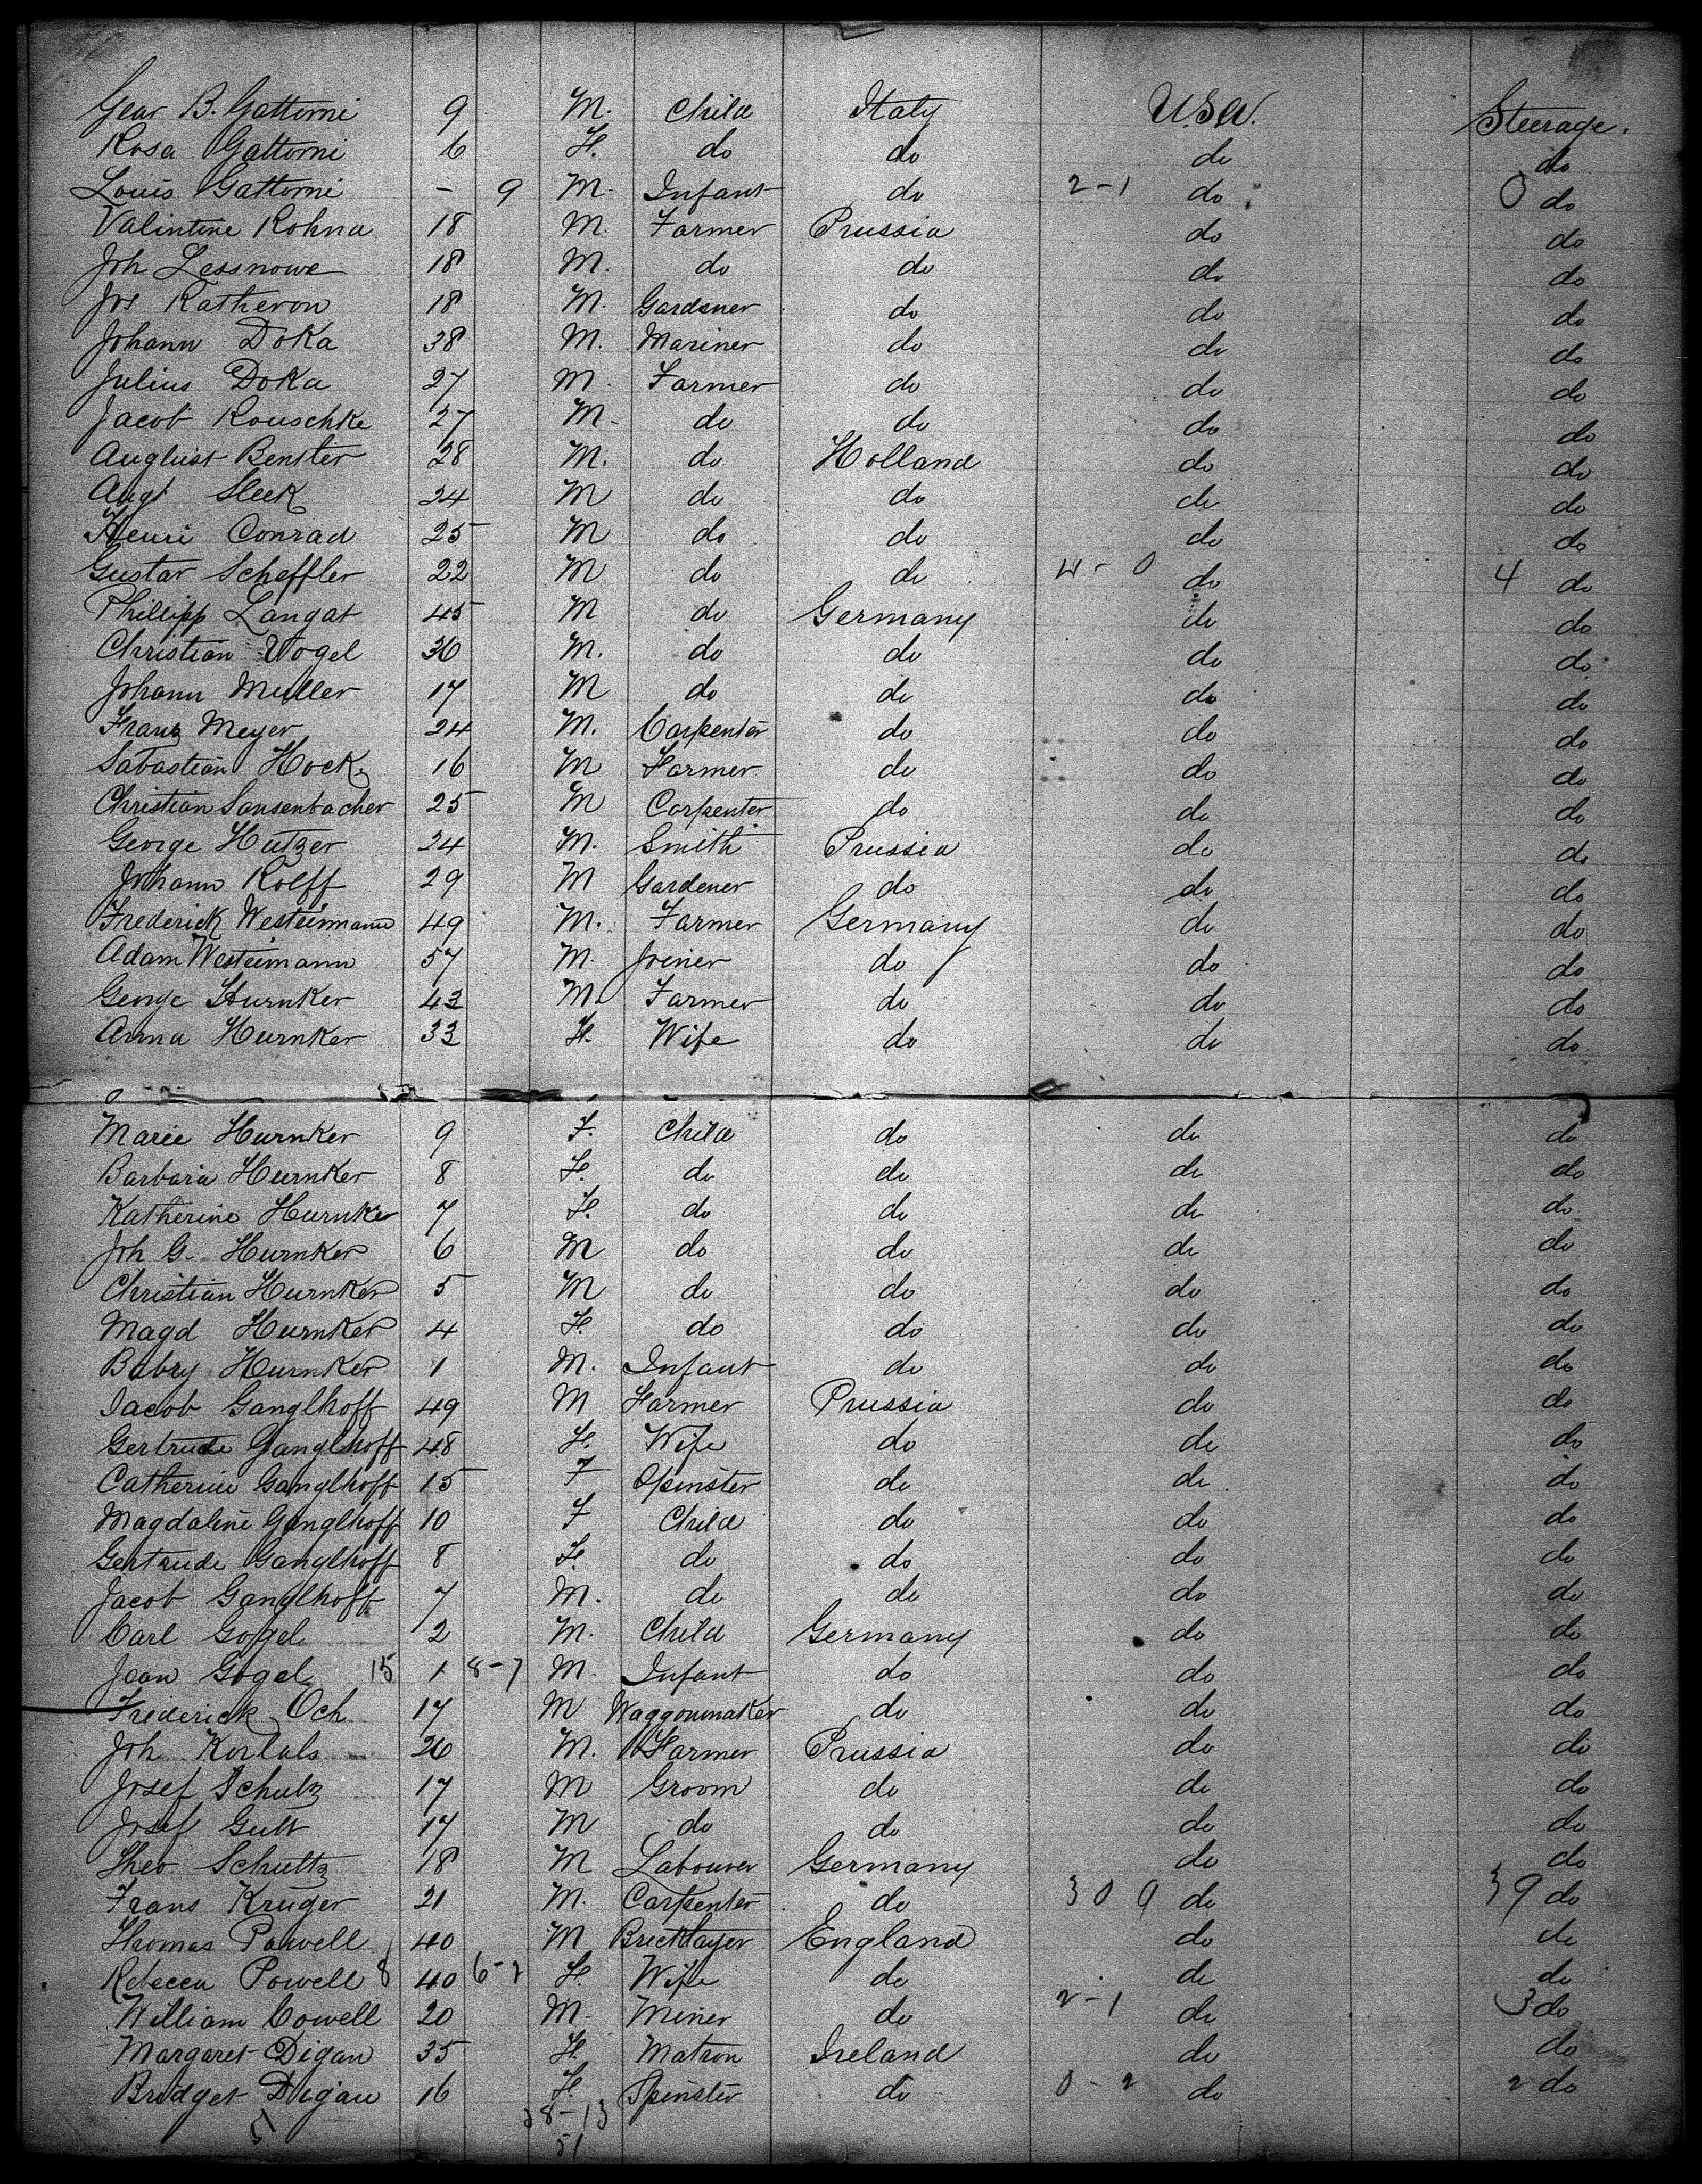 Gear B. Gattorni 9 M. Child Italy U.S.A. Steerage.
Rosa Gattorni 6 F. do do do do
Louis Gattorni - 9 M Infant do 2-1 do 0 do
Valintine Kohna 18 M. Farmer Prussia do do
Joh Lessnowe 18 M. do do do do
Jos Katheron 18 M. Gardener do do do
Johann Doka 38 M. Mariner do do do
Julius Doka 27 M. Farmer do do do
Jacob Rouschke 27 M. do do do do
Aughist Benster 28 M. do Holland do do
Augt Sleek 24 M do do do do
Henri Conrad 25 M do do do do
Gustav Scheffler 22 M do do 4-0 do 4 do
Phillipp Langat 45 M do Germany do do
Christian Vogel 36 M. do do do do
Johann Muller 17 M do do do do
Franz Meyer 24 M. Carpenter do do do
Sabastian Hock 16 M Farmer do do do
Christian Sansenbacher 25 M Carpenter do do do
George Hutzer 24 M. Smith Prussia do do
Johann Rolff 29 M Gardener do do do
Frederick Westeimann 49 M. Farmer Germany do do
Adam Westeimann 57 M. Joiner do do do
George Hurnker 43 M. Farmer do do do
Anna Hurnker 33 F. Wife do do do
Marie Hurnker 9 F. Child do do do
Barbara Hurnker 8 F. do do do do
Katherine Hurnker 7 F. do do do do
Joh G. Hurnker 6 M do do do do
Christian Hurnker 5 M do do do do
Magd Hurnker 4 F. do do do do
Babry Hurnker 1 M. Infant do do do
Jacob Ganglhoff 49 M Farmer Prussia do do
Gertrude Ganglhoff 48 F. Wife do do do
Catherine Ganglhoff 15 F Spinster do do do
Magdaline Ganglhoff 10 F Child do do do
Gertrude Ganglhoff 8 F. do do do do
Jacob Ganglhoff 7 M. do do do do
Carl Gogel 2 M. Child Germany do do
Jean Gogel 15 1 8-7 M. Infant do do do
Frederick Och 17 M Waggonmaker do do do
Joh Korlals 26 M. Farmer Prussia do do
Josef Schulz 17 M Groom do do do
Josef Gutt 17 M do do do do
Theo Schultz 18 M Labourer Germany do do
Frans Kruger 21 M. Carpenter do 30 9 do 39 do
Thomas Powell 40 M Bricklayer England do do
Rebecca Powell 8 40 6-2 F. Wife do do do
William Cowell 20 M. Miner do 2-1 do 3 do
Margaret Digan 35 F. Matron Ireland do do
Bridget Digan 16 F. Spinster do 0-2 do 2 do
51 38-13
51